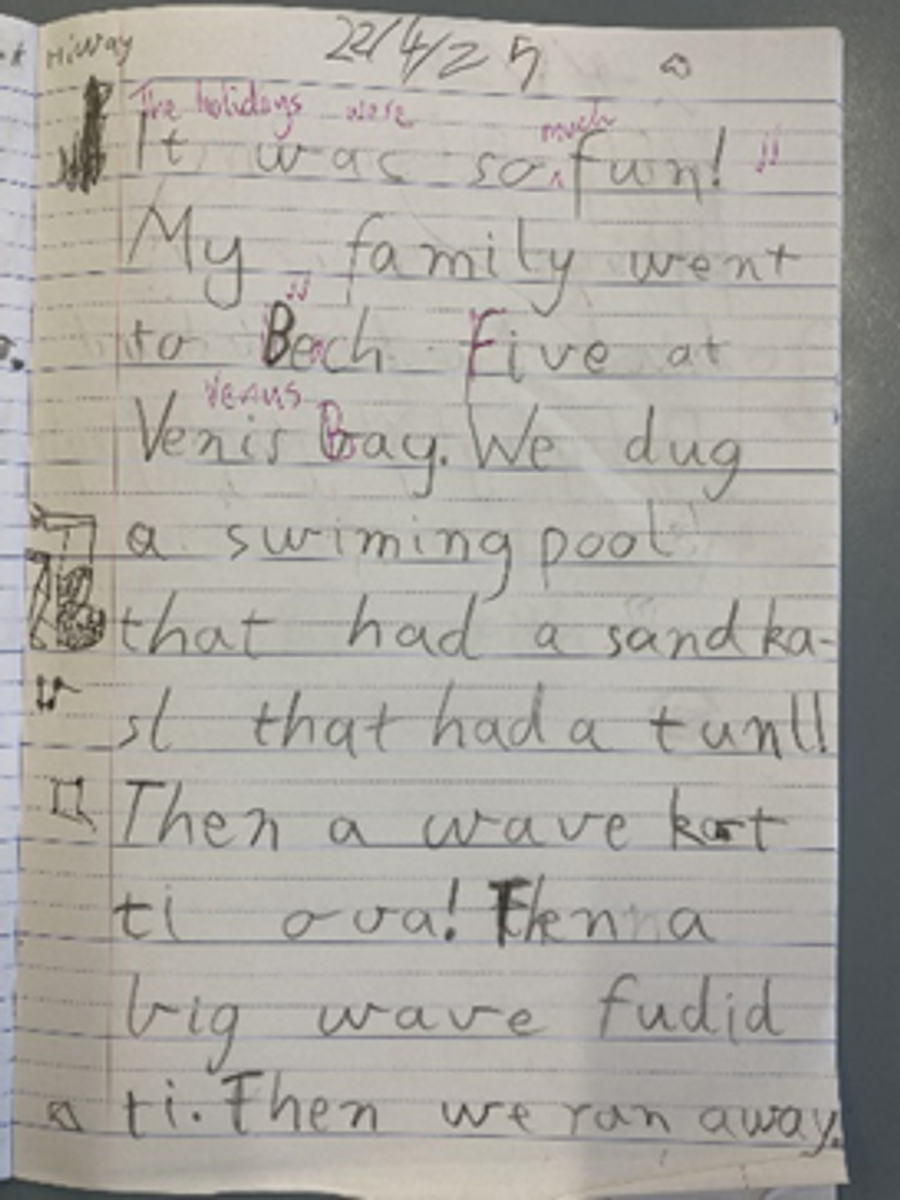 Hiway 22/4/25
The holidays were much
It was so fun!
My family went
to Beach Five at
Venus
Venis Bay. We dug
a swiming pool
that had a sandka-
sl that had a tunll
Then a wave kort
ti ova! Then a
big wave fudid
ti. Then we ran away.